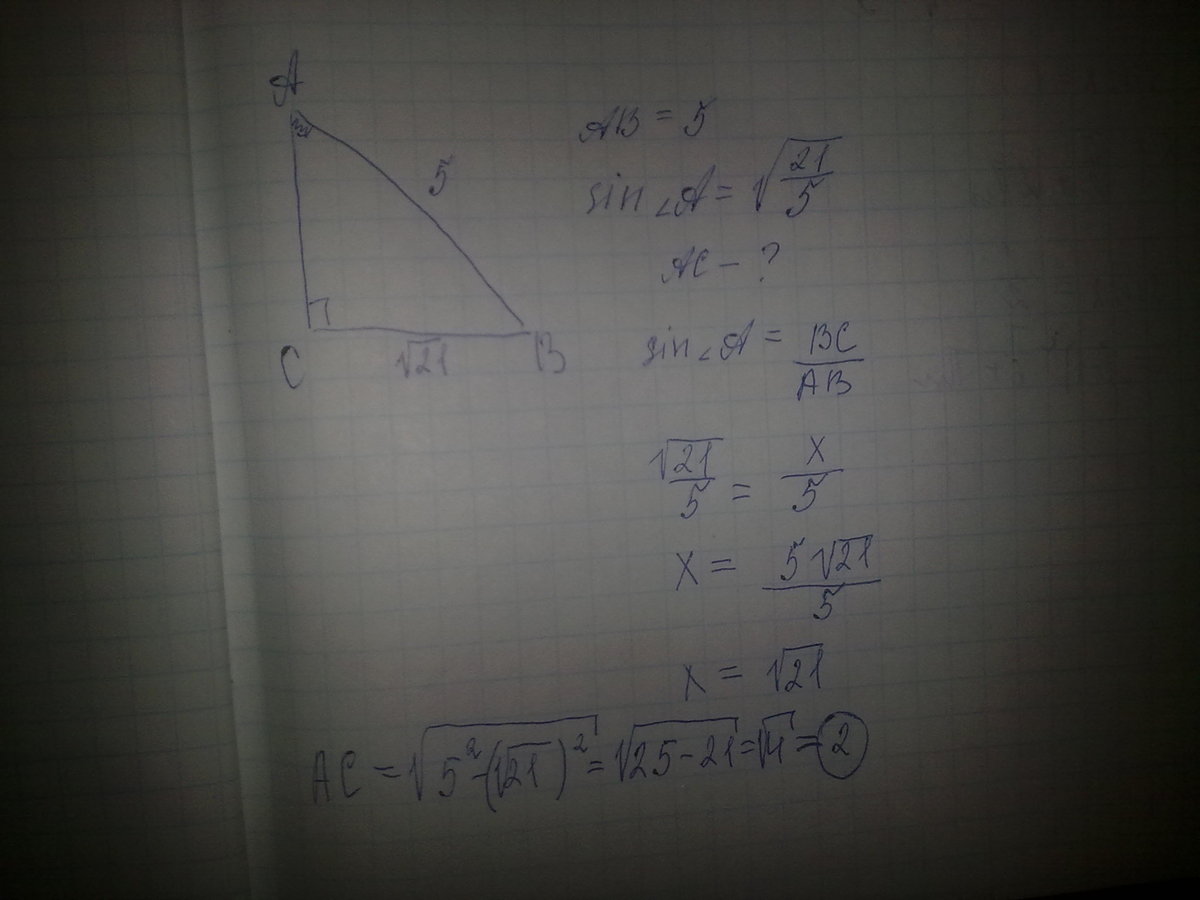 A
5
C
√21
B
AB = 5
sin∠A = √(21/5)
AC - ?
sin∠A = BC/AB
√21/5 = x/5
x = 5√21/5
x = √21
AC = √(5²-(√21)²) = √(25-21) = √4 = 2